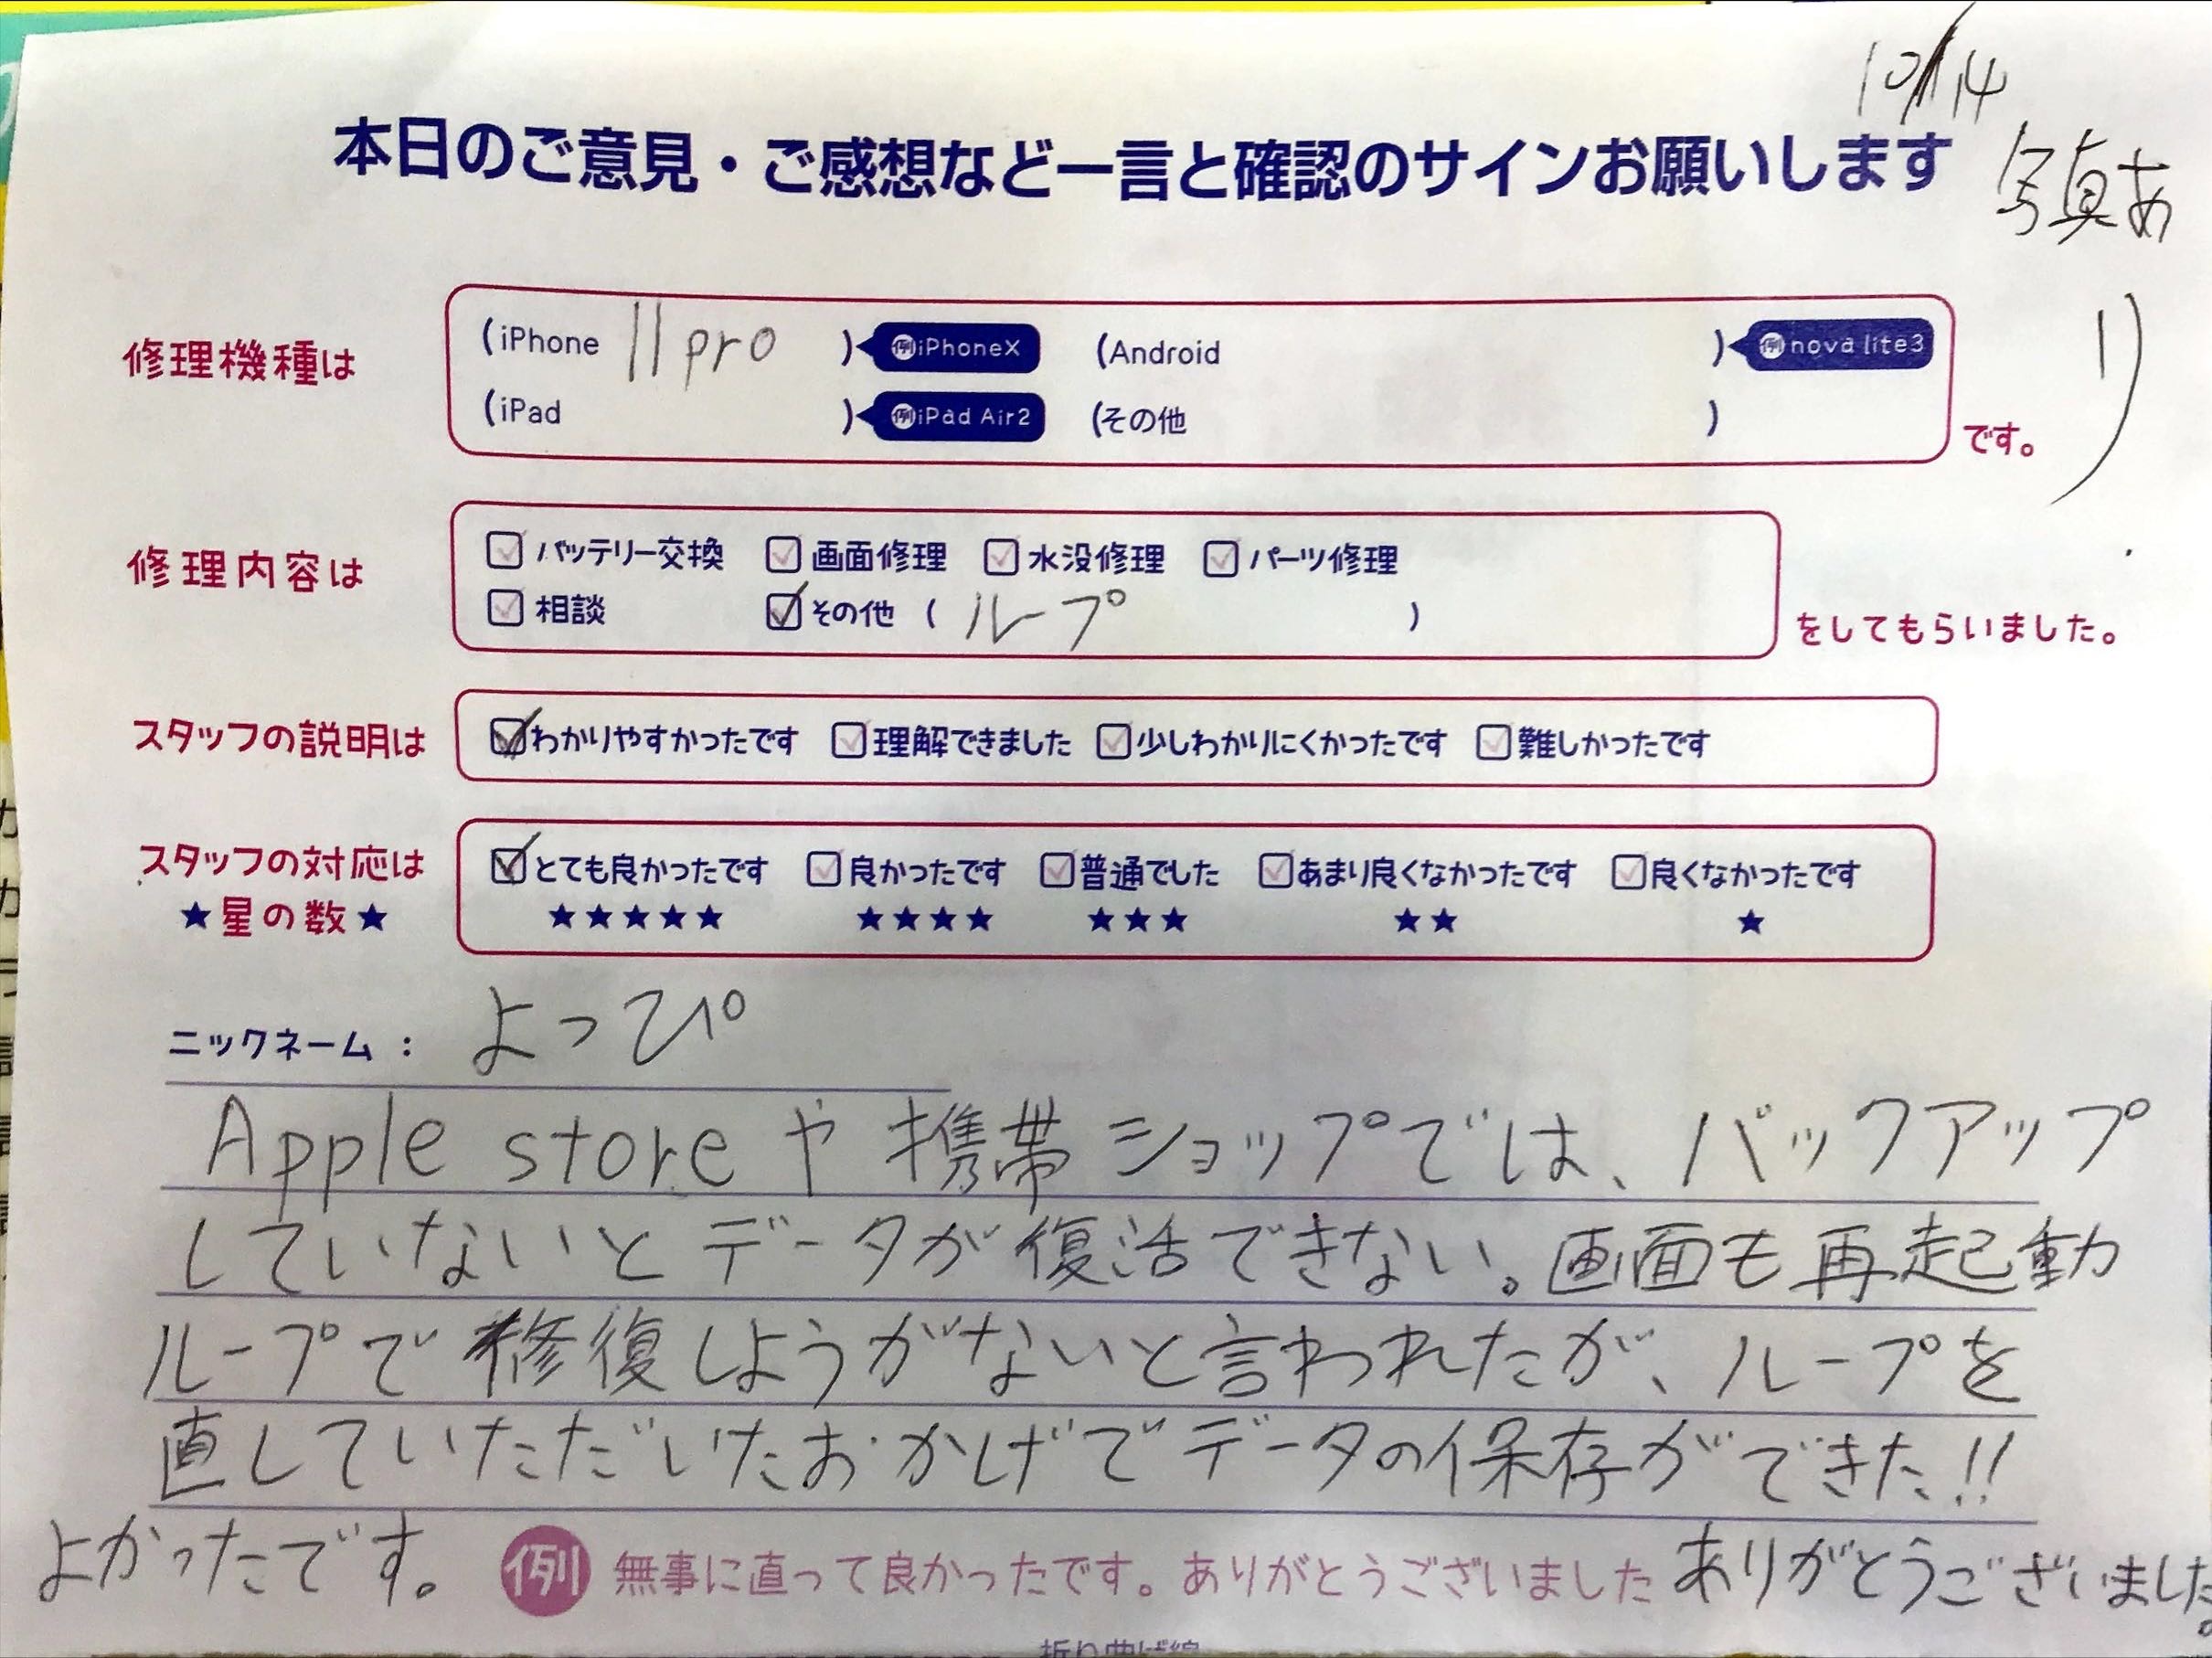 10/14
写真あ
り
本日のご意見・ご感想など一言と確認のサインお願いします
修理機種は
(iPhone 11 pro ) 例iPhoneX (Android ) 例nova lite3
(iPad ) 例iPad Air2 (その他 ) です。
修理内容は
バッテリー交換 画面修理 水没修理 パーツ修理
相談 その他 ( ループ ) をしてもらいました。
スタッフの説明は わかりやすかったです 理解できました 少しわかりにくかったです 難しかったです
スタッフの対応は とても良かったです 良かったです 普通でした あまり良くなかったです 良くなかったです
★星の数★ ★★★★★ ★★★★ ★★★ ★★ ★
ニックネーム： よっぴ
Apple storeや携帯ショップでは、バックアップ
していないとデータが復活できない。画面も再起動
ループで修復しようがないと言われたが、ループを
直していただいたおかげでデータの保存ができた!!
よかったです。 例 無事に直って良かったです。ありがとうございました ありがとうございました。
折り曲げ線